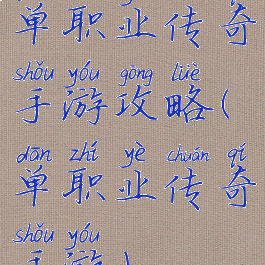 单职业传奇
shǒu yóu gōng lüè
手游攻略(
dān zhí yè chuán qí
单职业传奇
shǒu yóu
手游)